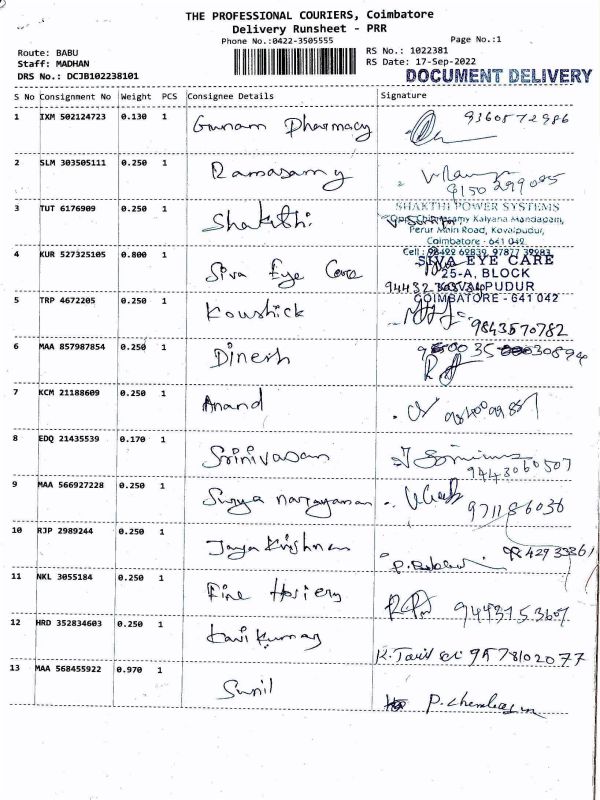 THE PROFESSIONAL COURIERS, Coimbatore
Delivery Runsheet - PRR
Phone No.:0422-3505555
Page No.:1
Route: BABU
RS No.: 1022381
Staff: MADHAN
RS Date: 17-Sep-2022
DRS No.: DCJB102238101
DOCUMENT DELIVERY
S No Consignment No Weight PCS Consignee Details Signature
1 IXM 502124723 0.130 1 Gunam Pharmacy 9360572986
2 SLM 303505111 0.250 1 Ramasamy
3 TUT 6176909 0.250 1 Shakthi
SHAKTHI POWER SYSTEMS
Kalyana Mandapam,
Perur Main Road, Kovaipudur,
Coimbatore - 641 042
Cell :
4 KUR 527325105 0.800 1 Siva Eye Care
SIVA EYE CARE
25-A, BLOCK
KOVAIPUDUR
COIMBATORE - 641 042
5 TRP 4672205 0.250 1 Koushick 9843570782
6 MAA 857987854 0.250 1 Dinesh
7 KCM 21188609 0.250 1 Anand
8 EDQ 21435539 0.170 1 Srinivasan 9443060507
9 MAA 566927228 0.250 1 Surya narayanan
10 RJP 2989244 0.250 1 Jaya Krishnan
11 NKL 3055184 0.250 1 Fine Hosiery
12 HRD 352834603 0.250 1 Kavi Kumar 9578102077
13 MAA 568455922 0.970 1 Sunil